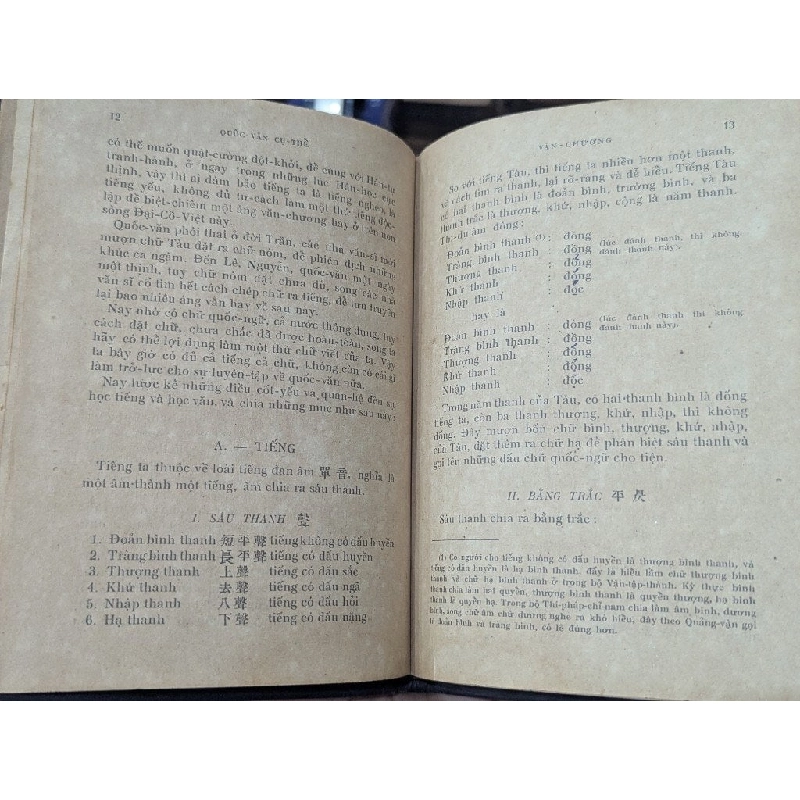 12
QUỐC-VĂN CỤ-THỂ
có thể muốn quật-cường đột-khởi, để cùng với Hán-tự
tranh-hành, ở ngay trong những lúc Hán-học cực
thịnh, vậy thì ai dám bảo tiếng ta là tiếng nghèo, là
tiếng yếu, không đủ tư-cách làm một thứ tiếng độc-
lập để biệt-chiếm một áng văn-chương hay ở trên non
sông Đại-Cồ-Việt này.
Quốc-văn phôi thai ở đời Trần, các nhà văn-sĩ
mượn chữ Tàu đặt ra chữ nôm, để phiên dịch những
khúc ca ngâm. Đến Lê, Nguyễn, quốc-văn một ngày
một thịnh, tuy chữ nôm đặt chưa đủ, song các nhà
văn sĩ cố tìm hết cách chép chữ ra tiếng, để lưu truyền
lại bao nhiêu áng văn hay về sau này.
Nay nhờ có chữ quốc-ngữ, cả nước thông dụng, tuy
cách đặt chữ, chưa chắc đã được hoàn-toàn, song ta
hãy có thể lợi dụng làm một thứ chữ viết của ta. Vậy
ta bây giờ có đủ cả tiếng cả chữ, không còn có cái gì
làm trở-lực cho sự luyện-tập về quốc-văn nữa.
Nay lược kể những điều cốt-yếu và quan-hệ đến sự
học tiếng và học văn, và chia những mục như sau này:
A. — TIẾNG
Tiếng ta thuộc về loài tiếng đan âm 單音, nghĩa là
một âm-thành một tiếng, âm chia ra sáu thanh.
I. SÁU THANH 聲
1. Đoản bình thanh 短平聲 tiếng không có dấu huyền
2. Tràng bình thanh 長平聲 tiếng có dấu huyền
3. Thượng thanh 上聲 tiếng có dấu sắc
4. Khứ thanh 去聲 tiếng có dấu ngã
5. Nhập thanh 入聲 tiếng có dấu hỏi
6. Hạ thanh 下聲 tiếng có dấu nặng
VĂN-CHƯƠNG
13
So với tiếng Tàu, thì tiếng ta nhiều hơn một thanh,
và cách tìm ra thanh, lại rõ-ràng và dễ hiểu. Tiếng Tàu
có hai thanh bình là đoản bình, trường bình, và ba
thanh trắc là thượng, khứ, nhập, cộng là năm thanh.
Thí-dụ âm đồng:
Đoản bình thanh (1) : đông (lúc đánh thanh, thì không
Tràng bình thanh : đồng đánh thanh này).
Thượng thanh : đổng
Khứ thanh : đống
Nhập thanh : độc
hay là
Đoản bình thanh : đông (lúc đánh thanh thì không
Tràng bình thanh : đồng đánh thanh này).
Thượng thanh : đổng
Khứ thanh : đống
Nhập thanh : độc
Trong năm thanh của Tàu, có hai-thanh bình là đồng
tiếng ta, còn ba thanh thượng, khứ, nhập, thì không
đồng. Đây mượn bốn chữ bình, thượng, khứ, nhập,
của Tàu, đặt thêm ra chữ hạ để phân biệt sáu thanh và
gọi tên những dấu chữ quốc-ngữ cho tiện.
II. BẰNG TRẮC 平仄
Sáu thanh chia ra bằng trắc :
(1) Có người cho tiếng không có dấu huyền là thượng bình thanh, và
tiếng có dấu huyền là hạ bình thanh, đấy là hiểu lầm chữ thượng bình
thanh và chữ hạ bình thanh ở trong bộ Vân-tập-thành. Kỳ thực bình
thanh chia làm hai quyển, thượng bình thanh là quyển thượng, hạ bình
thanh là quyển hạ. Trong bộ Thi-pháp-chỉ nam chia làm âm bình, dương
bình, song chữ âm chữ dương nghe ra khó hiểu, đây theo Quảng-vận gọi
là đoản bình và tràng bình, có lẽ đúng hơn.